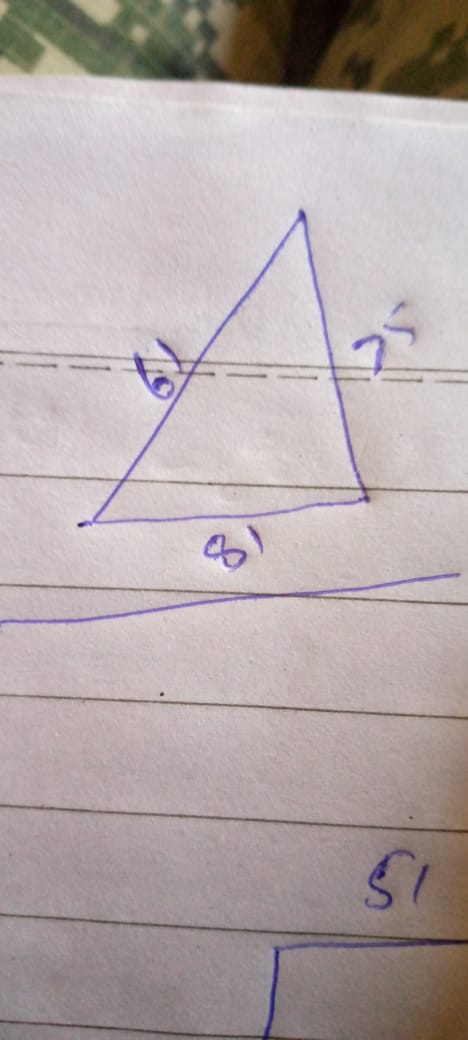 6'
7'
8'
5'